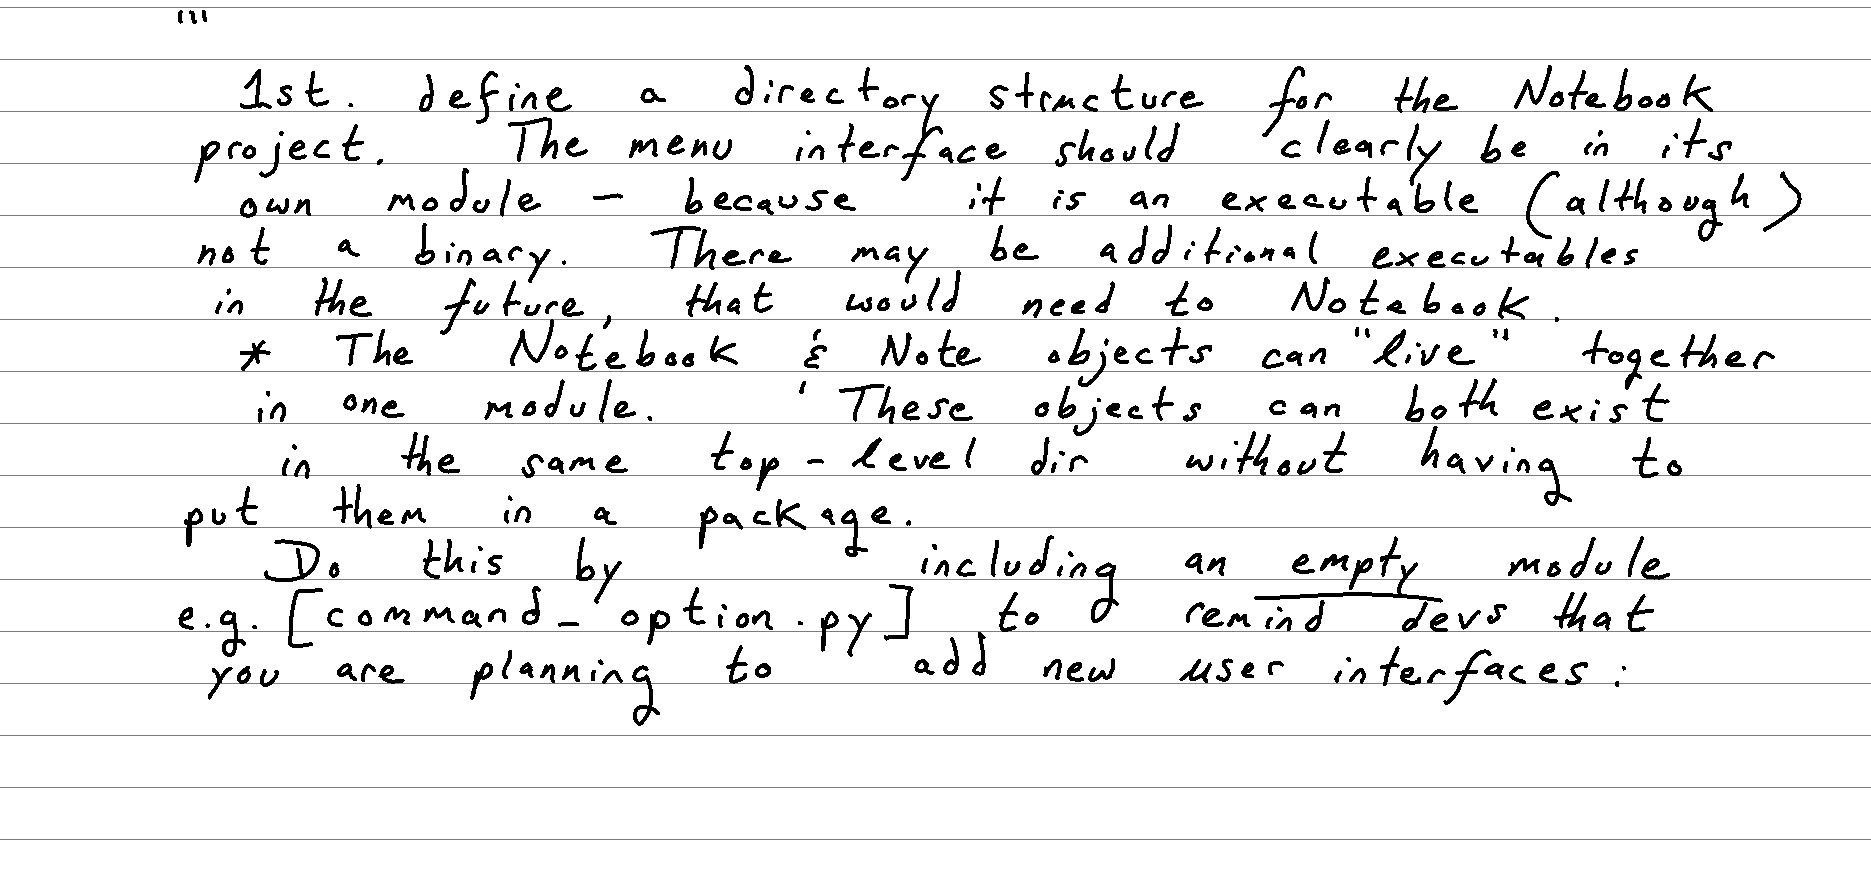 "'
1st. define a directory structure for the Notebook
project. The menu interface should clearly be in its
own module - because it is an executable (although)
not a binary. There may be additional executables
in the future, that would need to Notebook.
* The Notebook & Note objects can "live" together
in one module. ' These objects can both exist
in the same top-level dir without having to
put them in a package.
Do this by including an empty module
e.g. [command_option.py] to remind devs that
you are planning to add new user interfaces: